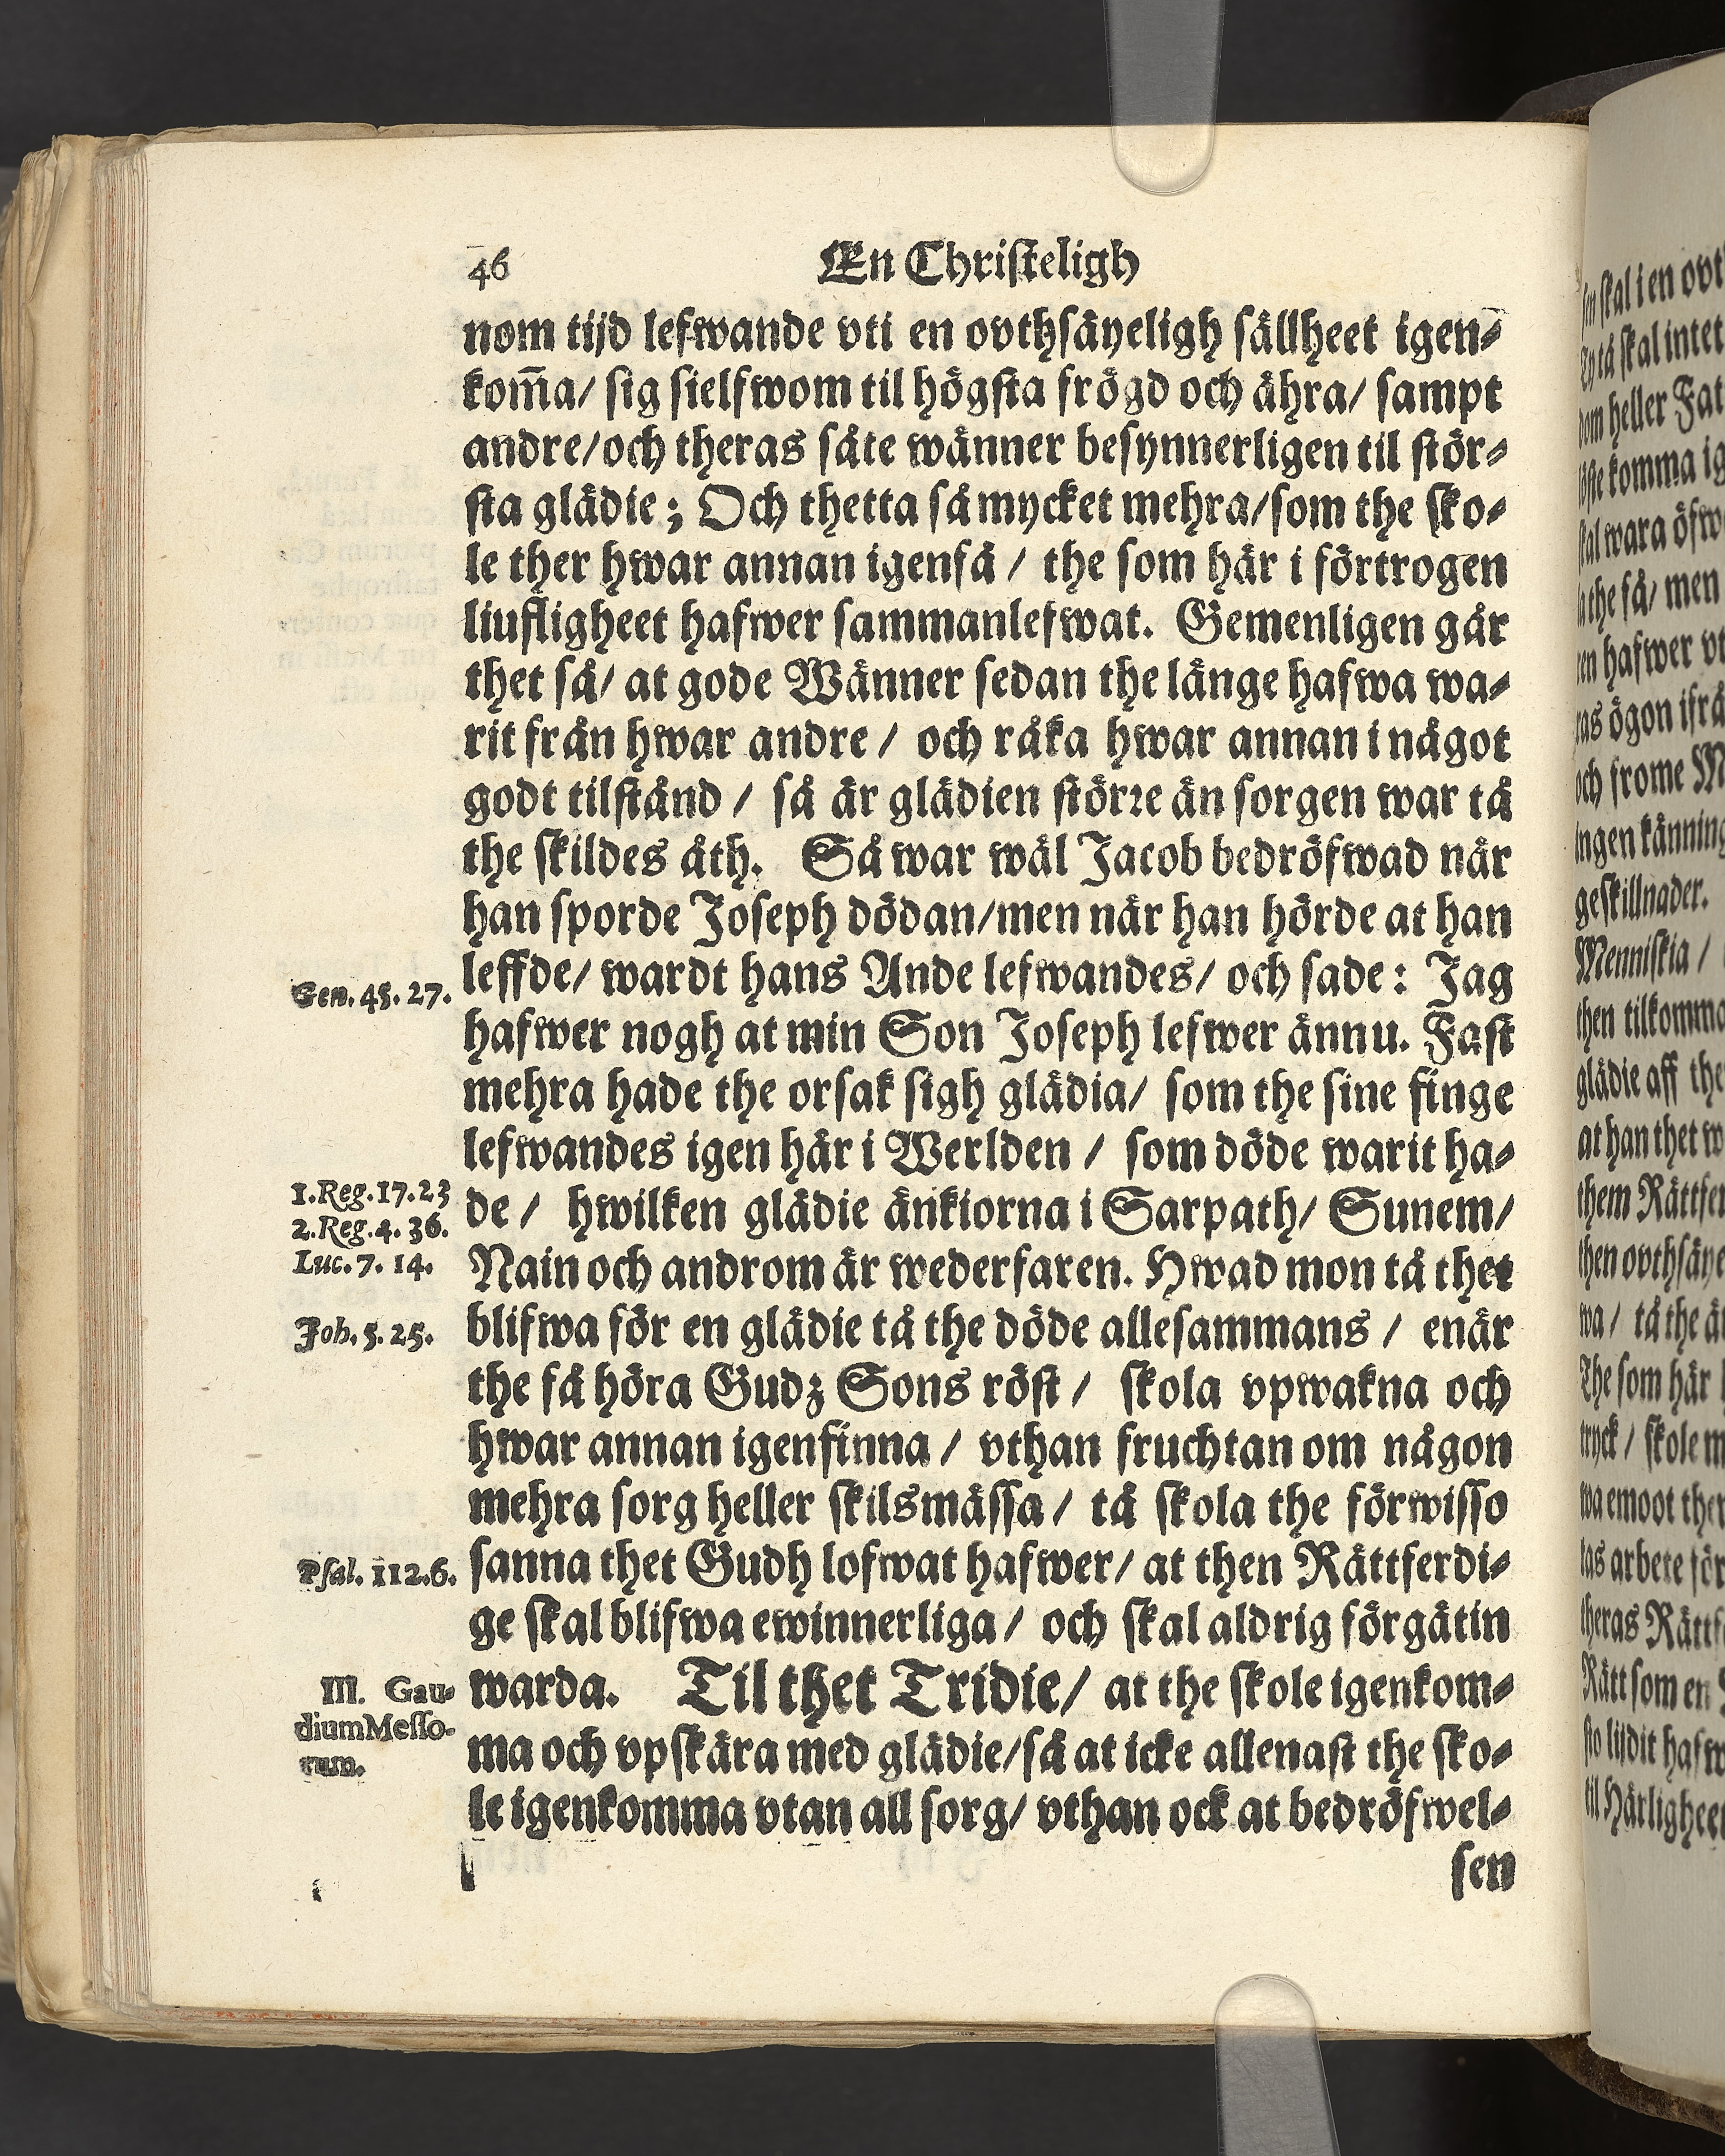 46 En Christeligh
nom tijd lefwande vti en ovthsäyeligh sällheet igen-
kom̃a/ sig sielfwom til högsta frögd och ähra/ sampt
andre/och theras såte wänner besynnerligen til stör-
sta glädie; Och thetta så mycket mehra/som the sko-
le ther hwar annan igenfå / the som här i förtrogen
liufligheet hafwer sammanlefwat. Gemenligen går
thet så/ at gode Wänner sedan the länge hafwa wa-
rit från hwar andre / och råka hwar annan i något
godt tilstånd / så är glädien större än sorgen war tå
the skildes åth. Så war wäl Jacob bedröfwad när
han sporde Joseph dödan/men när han hörde at han
Gen. 45. 27. leffde/ wardt hans Ande lefwandes/ och sade: Jag
hafwer nogh at min Son Joseph lefwer ännu. Fast
mehra hade the orsak sigh glädia/ som the sine finge
lefwandes igen här i Werlden / som döde warit ha-
1. Reg. 17. 23 de / hwilken glädie änkiorna i Sarpath/ Sunem/
2. Reg. 4. 36.
Luc. 7. 14. Nain och androm är wederfaren. Hwad mon tå thet
Joh. 5. 25. blifwa för en glädie tå the döde allesammans / enär
the få höra Gudz Sons röst / skola vpwakna och
hwar annan igenfinna / vthan fruchtan om någon
mehra sorg heller skilsmässa / tå skola the förwisso
Psal. 112. 6. sanna thet Gudh lofwat hafwer/ at then Rättferdi-
ge skal blifwa ewinnerliga / och skal aldrig förgätin
III. Gau- warda. Til thet Tridie/ at the skole igenkom-
dium Messo- ma och vpskära med glädie/så at icke allenast the sko-
rum. le igenkomma vtan all sorg/ vthan ock at bedröfwel-
sen